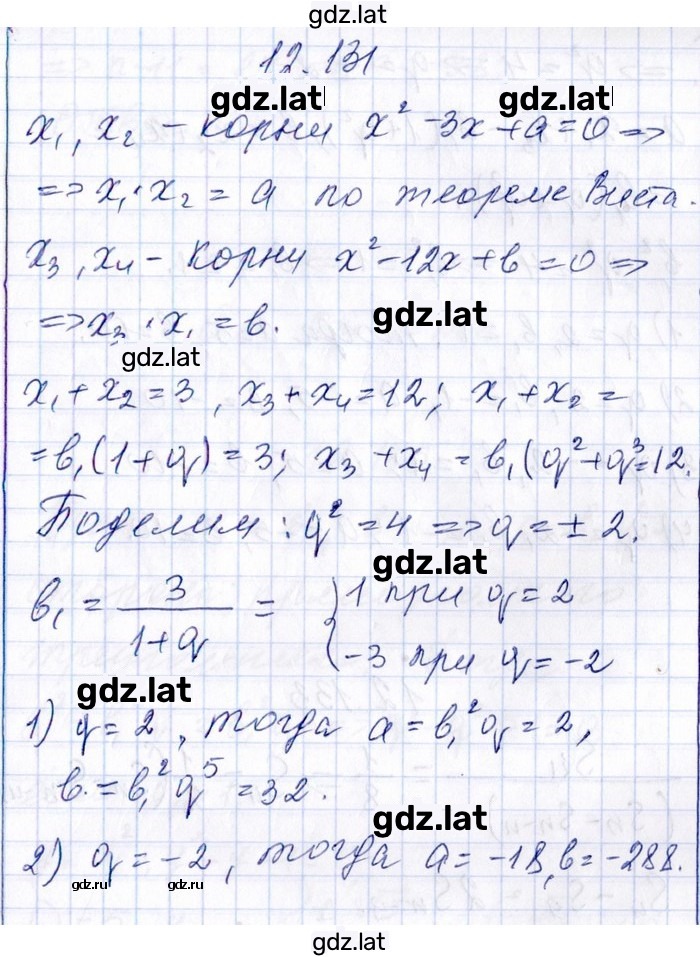 gdz.lat
12.131
gdz.lat gdz.lat
x₁, x₂ – корни x² -3x+a=0 =>
=> x₁·x₂ = a по теореме Виета.
x₃, x₄ – корни x²-12x+b=0 =>
=> x₃·x₁ = b. gdz.lat
gdz.lat
x₁+x₂=3, x₃+x₄=12; x₁+x₂=
=b₁(1+q)=3; x₃+x₄=b₁(q²+q³=12.
Поделим: q²=4 => q=±2.
gdz.lat
b₁ = 3/(1+q) = { 1 при q=2
-3 при q=-2
gdz.lat
1) q=2, тогда a=b₁²q=2,
b.=b₁²q⁵=32.
gdz.lat
2) q=-2, тогда a=-18, b=-288.
gdz.ru gdz.ru
gdz.lat